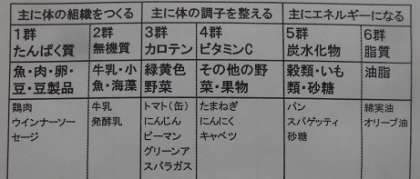 主に体の組織をつくる 主に体の調子を整える 主にエネルギーになる
1群 2群 3群 4群 5群 6群
たんぱく質 無機質 カロテン ビタミンC 炭水化物 脂質
魚・肉・卵・ 牛乳・小 緑黄色 その他の野 穀類・いも 油脂
豆・豆製品 魚・海藻 野菜 菜・果物 類・砂糖
鶏肉 牛乳 トマト(缶) たまねぎ パン 綿実油
ウインナーソー 発酵乳 にんじん にんにく スパゲッティ オリーブ油
セージ ピーマン キャベツ 砂糖
グリーンア
スパラガス